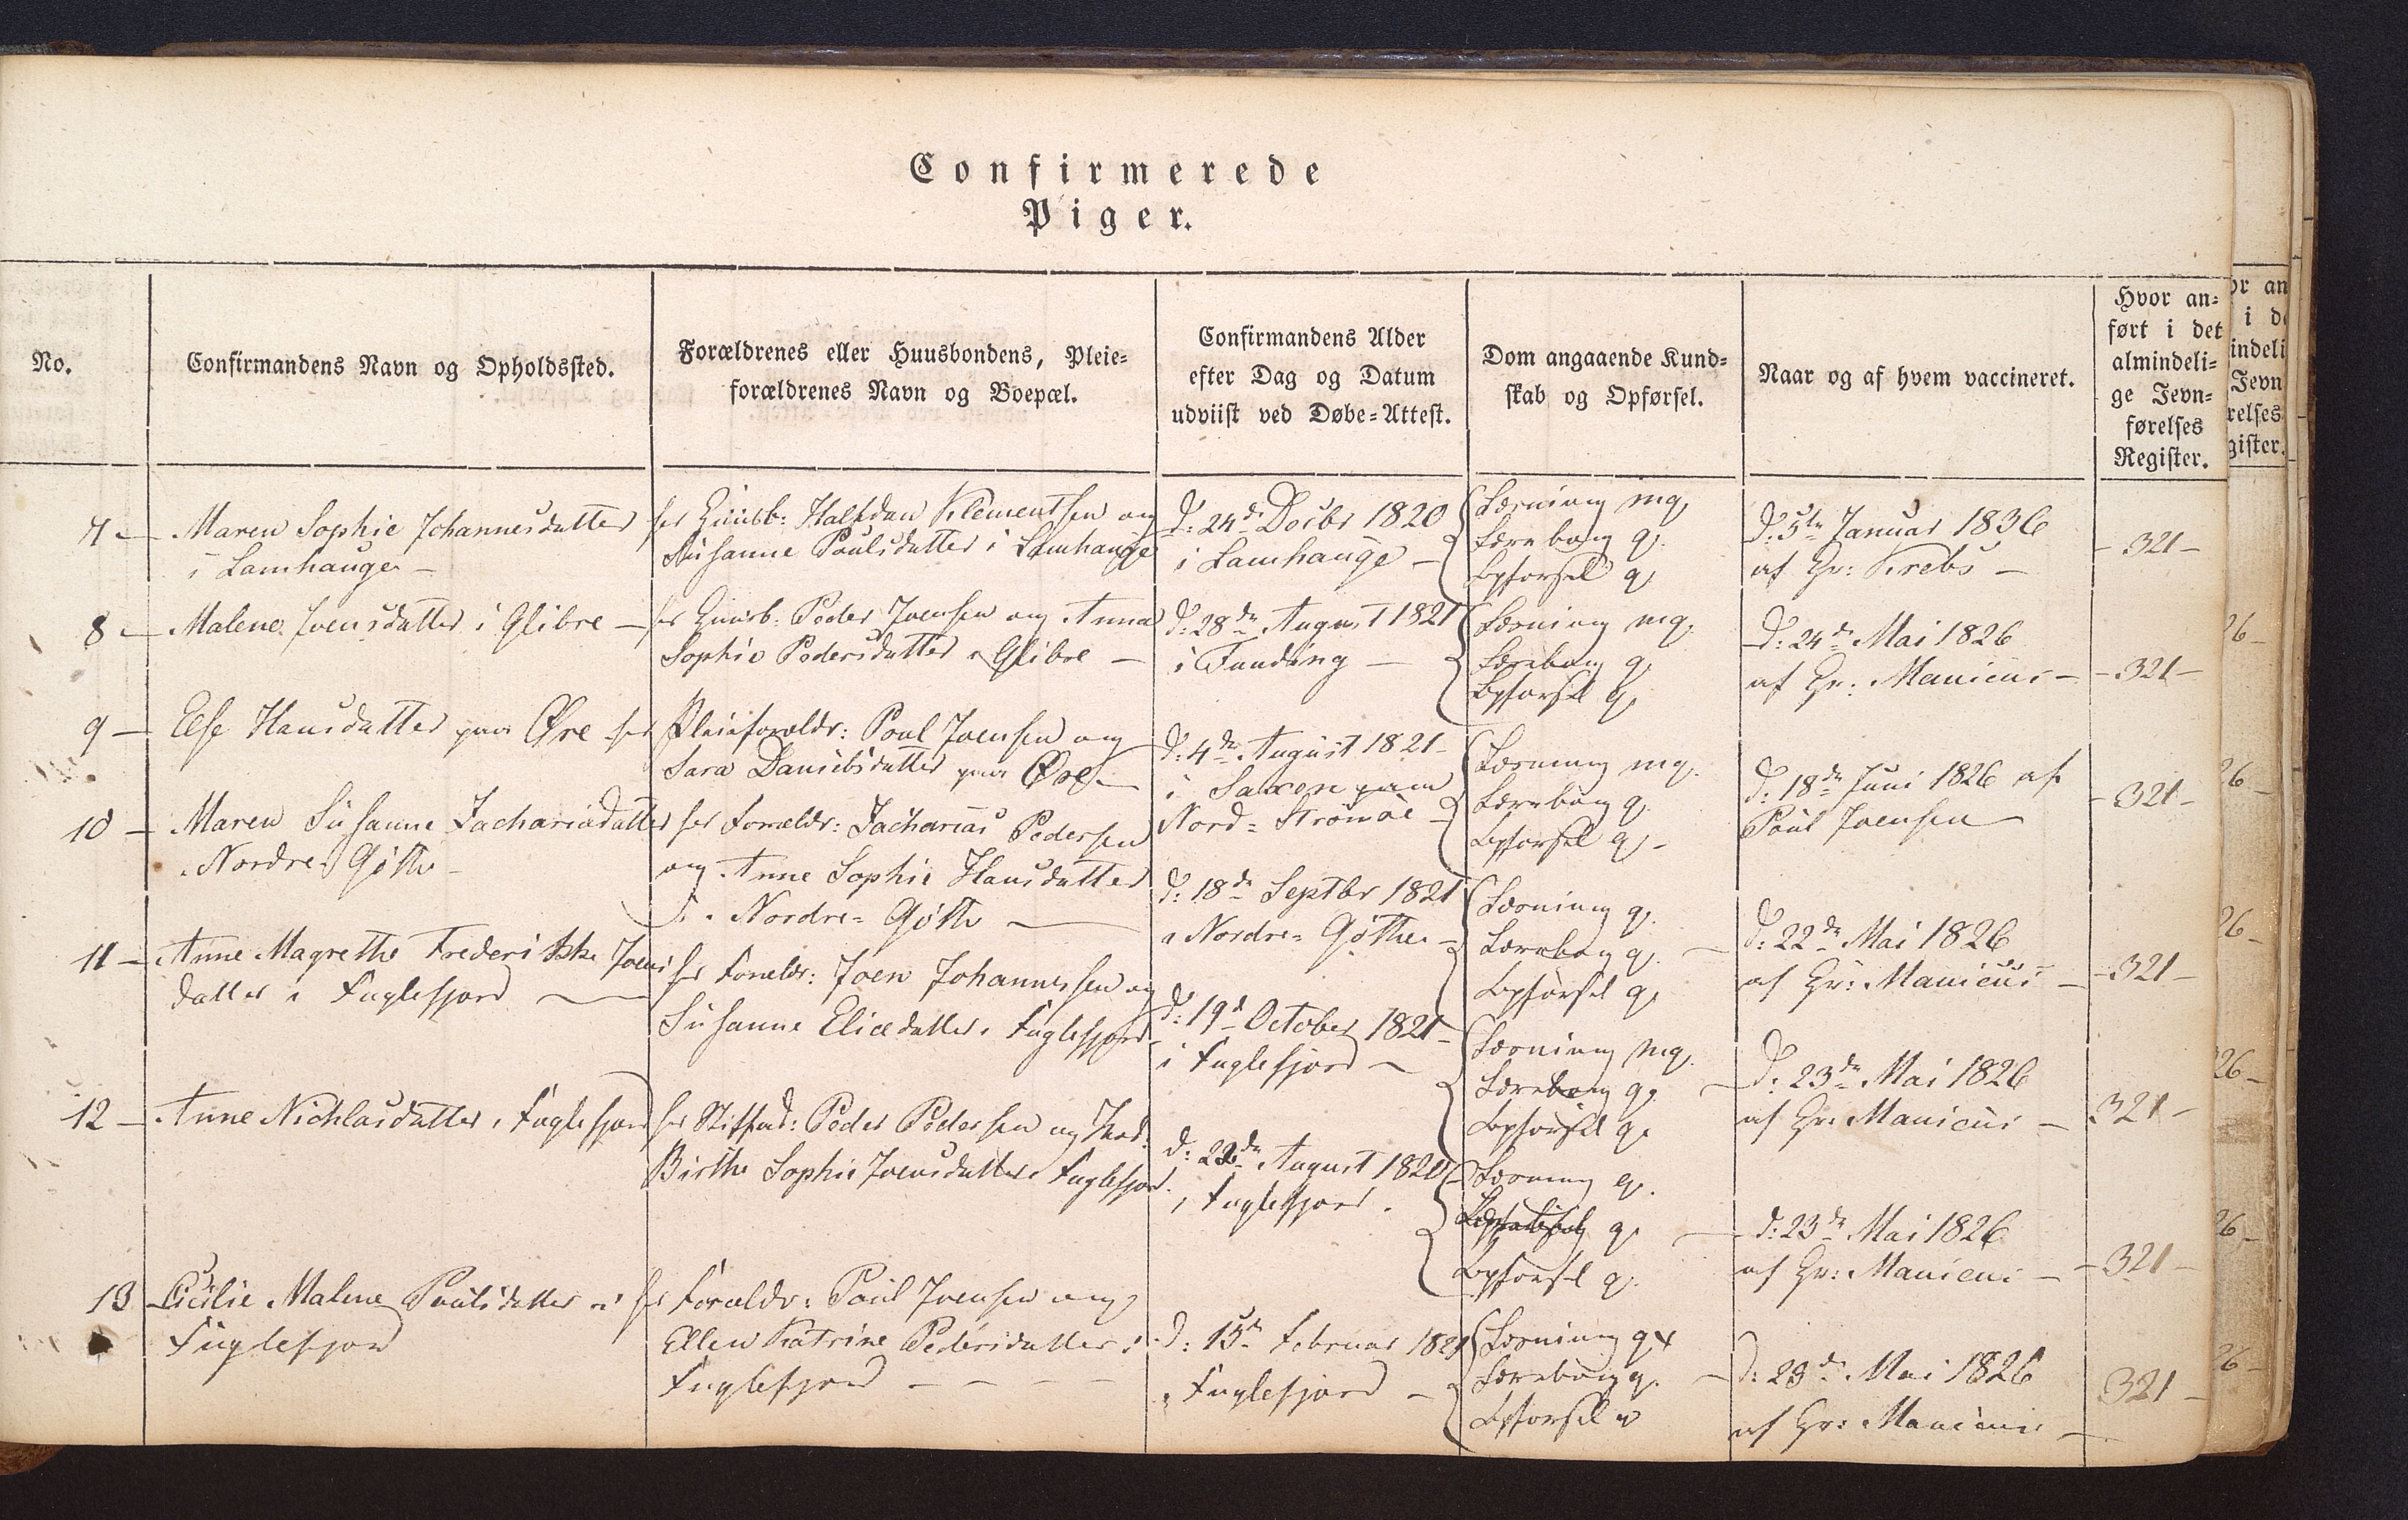 Confirmerede
Piger.
No.
Confirmandens Navn og Opholdssted.
Forældrenes eller Huusbondens, Pleie=
forældrenes Navn og Boepæl.
Confirmandens Alder
efter Dag og Datum
udviist ved Døbe=Attest.
Dom angaaende Kund=
skab og Opførsel.
Naar og af hvem vaccineret.
Hvor an=
ført i det
almindeli=
ge Jevn=
førelses
Register.
7 –
Maren Sophie Johannesdatter
i Lamhauge –
hos Huusb: Halfdan Klementsen og
Susanne Poulsdatter i Lamhauge
d: 24de Decbr 1820
i Lamhauge –
Læsning mg
Lærebog g.
Opførsel g
D. 5te Januar 1836
af Hr: Krebs –
– 321 –
8 –
Malene Joensdatter i Glibre –
hos Huusb: Peder Joensen og Anna
Sophie Pedersdatter i Glibre –
d: 28de August 1821
i Funding –
Læsning mg.
Lærebog g
Opførsel g
D: 24de Mai 1826
af Hr: Manicus –
– 321 –
9 –
Else Hansdatter paa Øre hos
Pleieforældr: Poul Joensen og
Sara Danielsdatter paa Øre –
d: 4de August 1821 –
i Saxen paa
Nord=Strømøe –
Læsning mg.
Lærebog g.
Opførsel g –
d: 18de Juni 1826 af
Poul Joensen
– 321 –
10 –
Maren Susanne Zachariadatter
i Nordre Gøthe –
hos Forældr: Zacharias Pedersen
og Anne Sophie Hansdatter
i Nordre=Gøthe –
d: 18de Septbr 1821
i Nordre=Gøthe –
Læsning g.
Lærebog g. –
Opførsel g.
d: 22de Mai 1826
af Hr: Manicus –
– 321 –
11 –
Anne Magrethe Frederikke Joens
datter i Fuglefjord –
hos Forældr: Joen Johannessen og
Susanne Eliædatter i Fuglefjord
d: 19d October 1821 –
i Fuglefjord –
Læsning mg.
Lærebog g. –
Opførsel g.
D: 23de Mai 1826
af Hr: Manicus –
321 –
12 –
Anne Nichlasdatter i Fuglefjord
hos Stiffad: Peder Pedersen og Mod:
Birthe Sophie Joensdatter i Fuglefjord.
d: 22de August 1820
i Fuglefjord.
Læsning g.
g. –
Opførsel g.
d: 23de Mai 1826
af Hr: Manicus –
– 321 –
13
Cicilie Malene Poulsdatter i
Fuglefjord
hos Forældr: Poul Joensen og
Ellen Katrine Pedersdatter i
Fuglefjord – – – –
d: 15de Februar 1821
i Fuglefjord –
Læsning g+
Lærebog g. –
Opførsel
D: 23de Mai 1826
af Hr: Manicus –
321 –